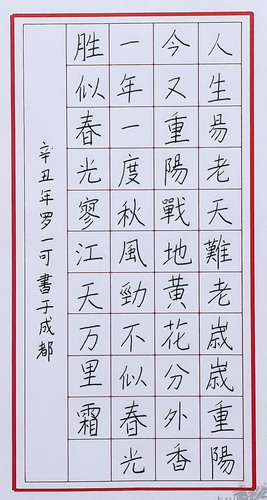 人生易老天難老歲歲重陽
今又重陽戰地黃花分外香
一年一度秋風勁不似春光
胜似春光寥江天万里霜
辛丑年罗一可書于成都